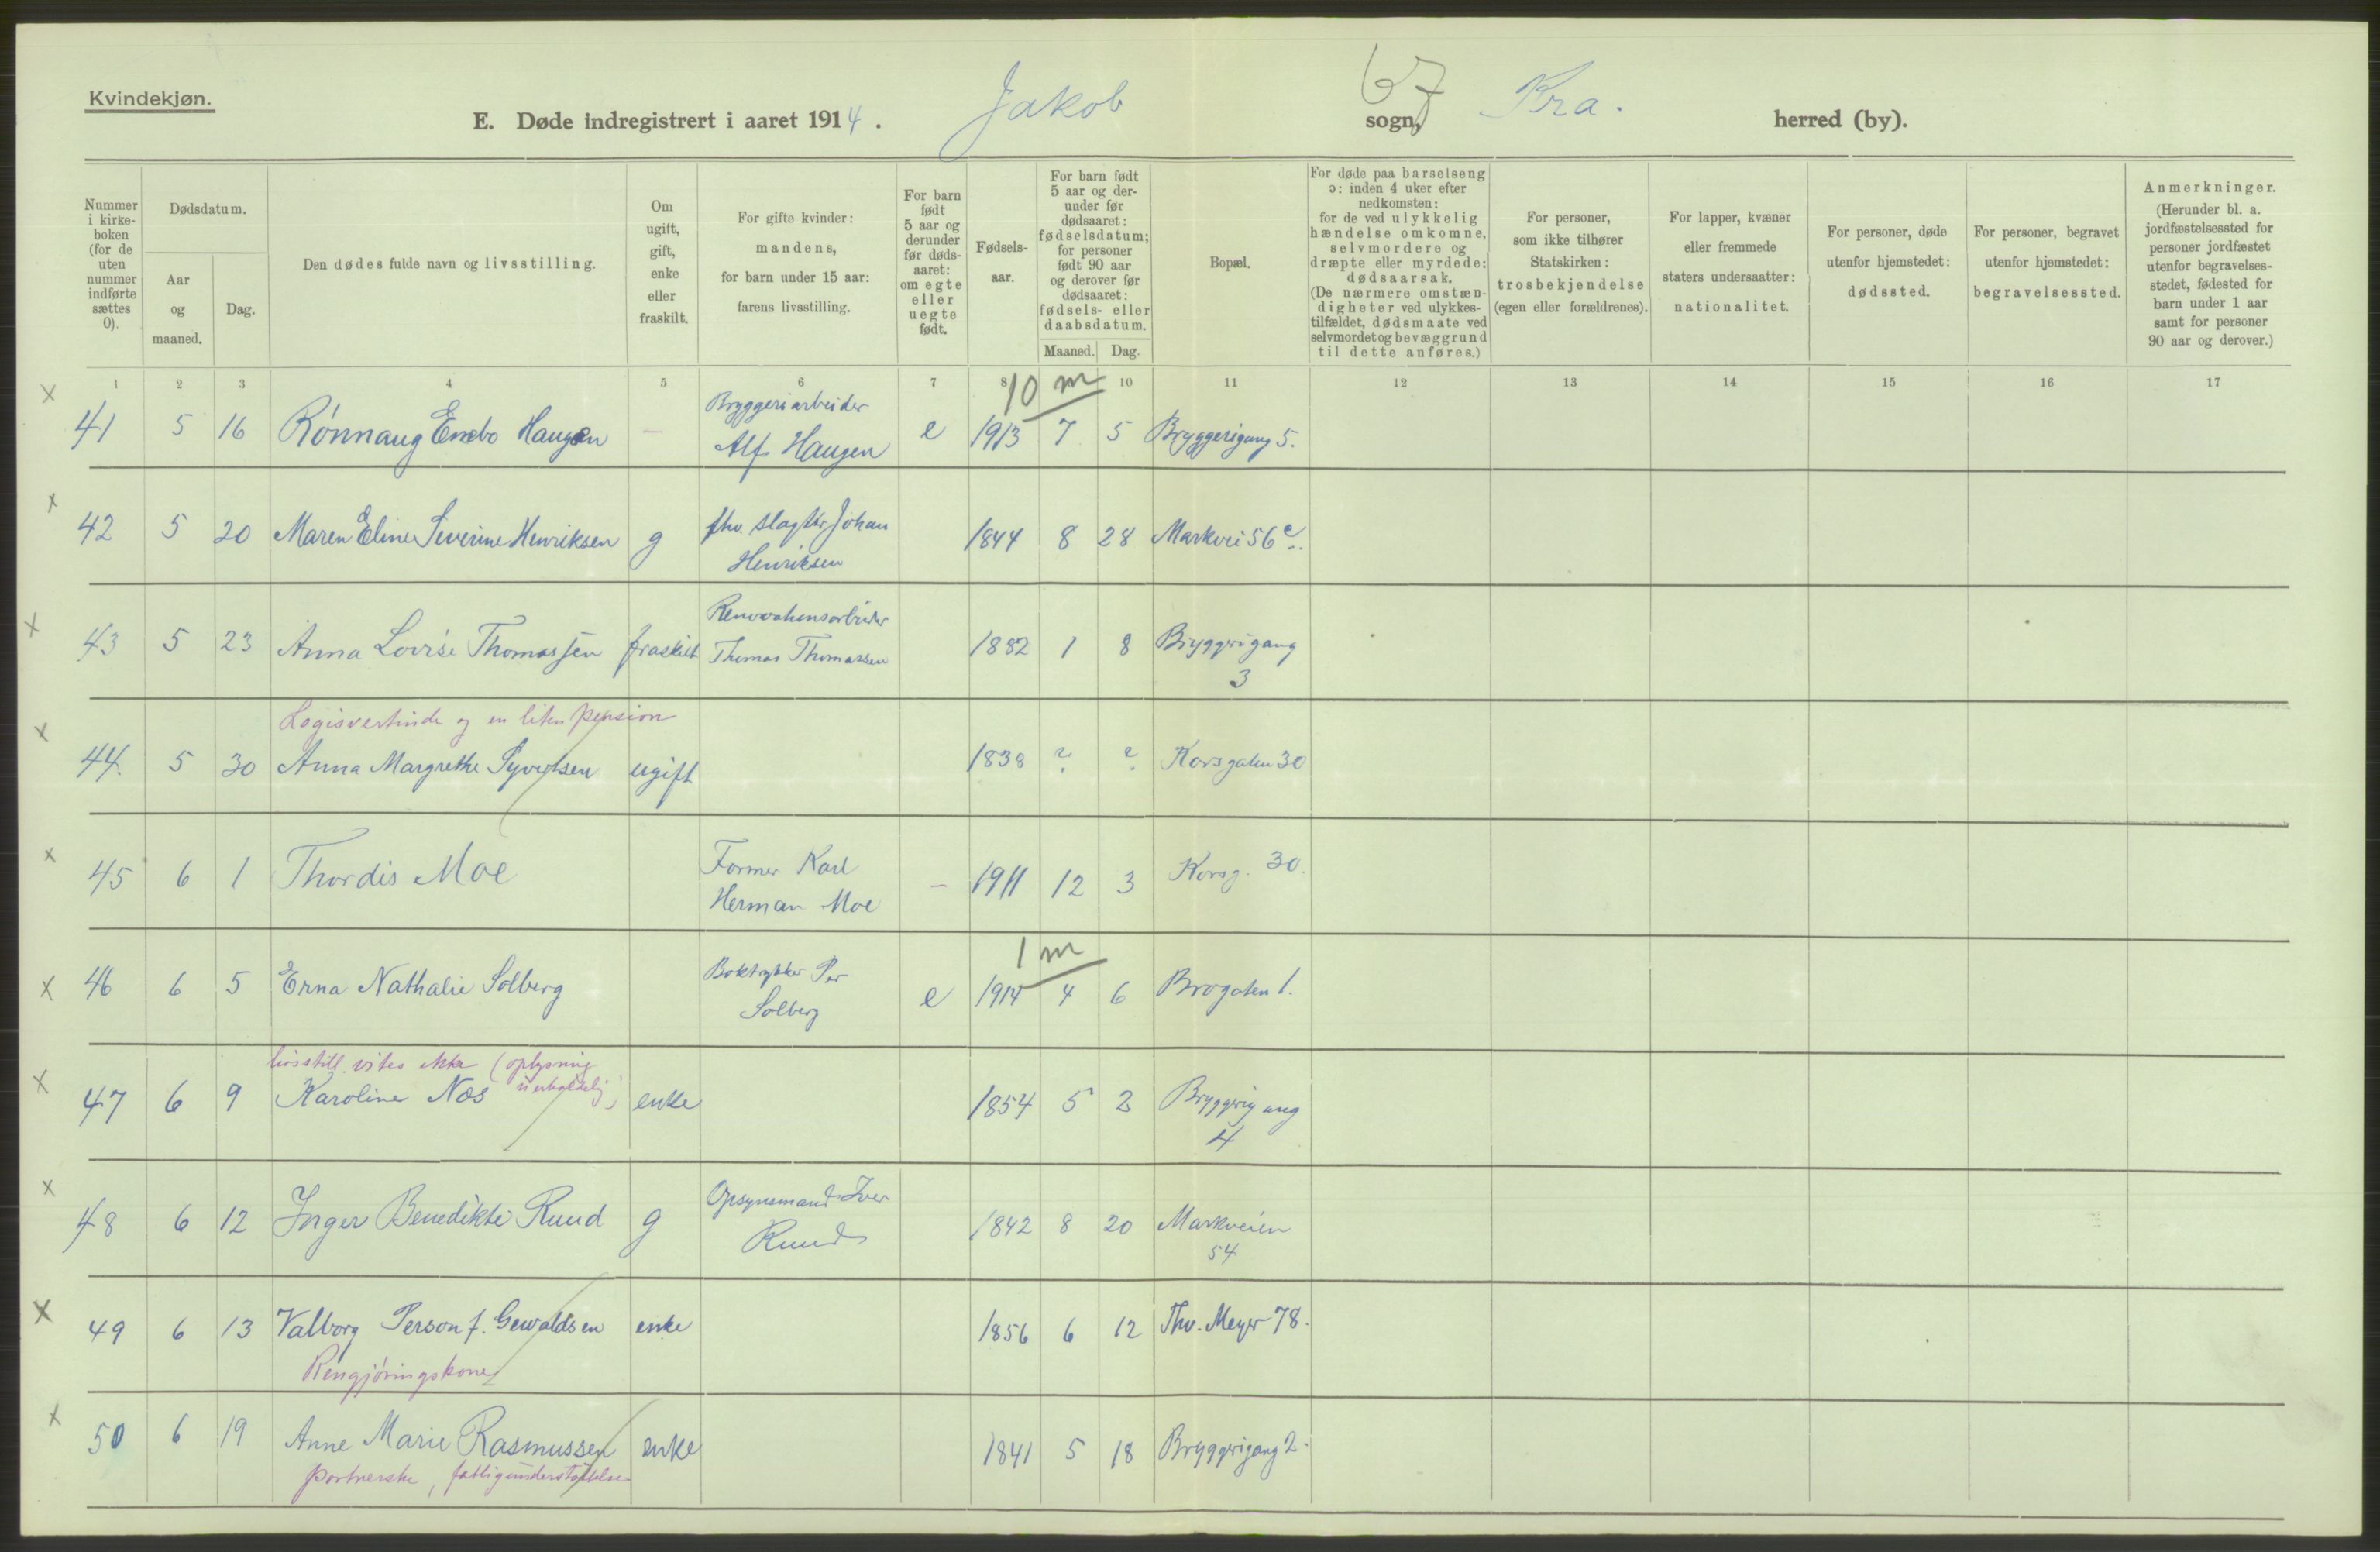 Kvindekjøn.
E. Døde indregistrert i aaret 1914. Jakob sogn, Kra. herred (by).
67
Nummer i kirkeboken (for de uten nummer indførte sættes 0).
Dødsdatum.
Aar og maaned.
Dag.
Den dødes fulde navn og livsstilling.
Om ugift, gift, enke eller fraskilt.
For gifte kvinder: mandens, for barn under 15 aar: farens livsstilling.
For barn født 5 aar og derunder før dødsaaret: om egte eller uegte født.
Fødselsaar.
For barn født 5 aar og derunder før dødsaaret: fødselsdatum; for personer født 90 aar og derover før dødsaaret: fødsels- eller daabsdatum.
Maaned. Dag.
Bopæl.
For døde paa barselseng ɔ: inden 4 uker efter nedkomsten: for de ved ulykkelig hændelse omkomne, selvmordere og dræpte eller myrdede: dødsaarsak. (De nærmere omstændigheter ved ulykkestilfældet, dødsmaate ved selvmordet og bevæggrund til dette anføres.)
For personer, som ikke tilhører Statskirken: trosbekjendelse (egen eller forældrenes).
For lapper, kvæner eller fremmede staters undersaatter: nationalitet.
For personer, døde utenfor hjemstedet: dødssted.
For personer, begravet utenfor hjemstedet: begravelsessted.
Anmerkninger. (Herunder bl. a. jordfæstelsessted for personer jordfæstet utenfor begravelsesstedet, fødested for barn under 1 aar samt for personer 90 aar og derover.)
1 2 3 4 5 6 7 8 10 11 12 13 14 15 16 17
10 m
x 41 5 16 Rønnaug Enebo Haugen — Bryggeriarbeider Alf Haugen e 1913 7 5 Bryggerigang 5.
x 42 5 20 Maren Eline Severine Henriksen g fhv. slagter Johan Henriksen 1844 8 28 Markvei 56 c.
x 43 5 23 Anna Lovise Thomassen fraskilt Renovationsarbeider Thomas Thomassen 1882 1 8 Bryggerigang 3
Logisvertinde og en liten pension
x 44. 5 30 Anna Margrethe Syvertsen ugift 1838 ? ? Korsgaten 30
x 45 6 1 Thordis Moe Former Karl Herman Moe — 1911 12 3 Korsg. 30.
1 m
x 46 6 5 Erna Nathalie Solberg Boktrykker Per Solberg e 1914 4 6 Brogaten 1.
livsstill. vites ikke (oplysning uerholdelig)
x 47 6 9 Karoline Næs enke 1854 5 2 Bryggerigang 4
x 48 6 12 Inger Benedikte Ruud g Opsynsmand Iver Ruud 1842 8 20 Markveien 54
x 49 6 13 Valborg Person f. Gewaldsen enke 1856 6 12 Thv. Meyer 78.
Rengjøringskone
x 50 6 19 Anne Marie Rasmussen enke 1841 5 18 Bryggerigang 2.
portnerske, fattigunderstøttelse